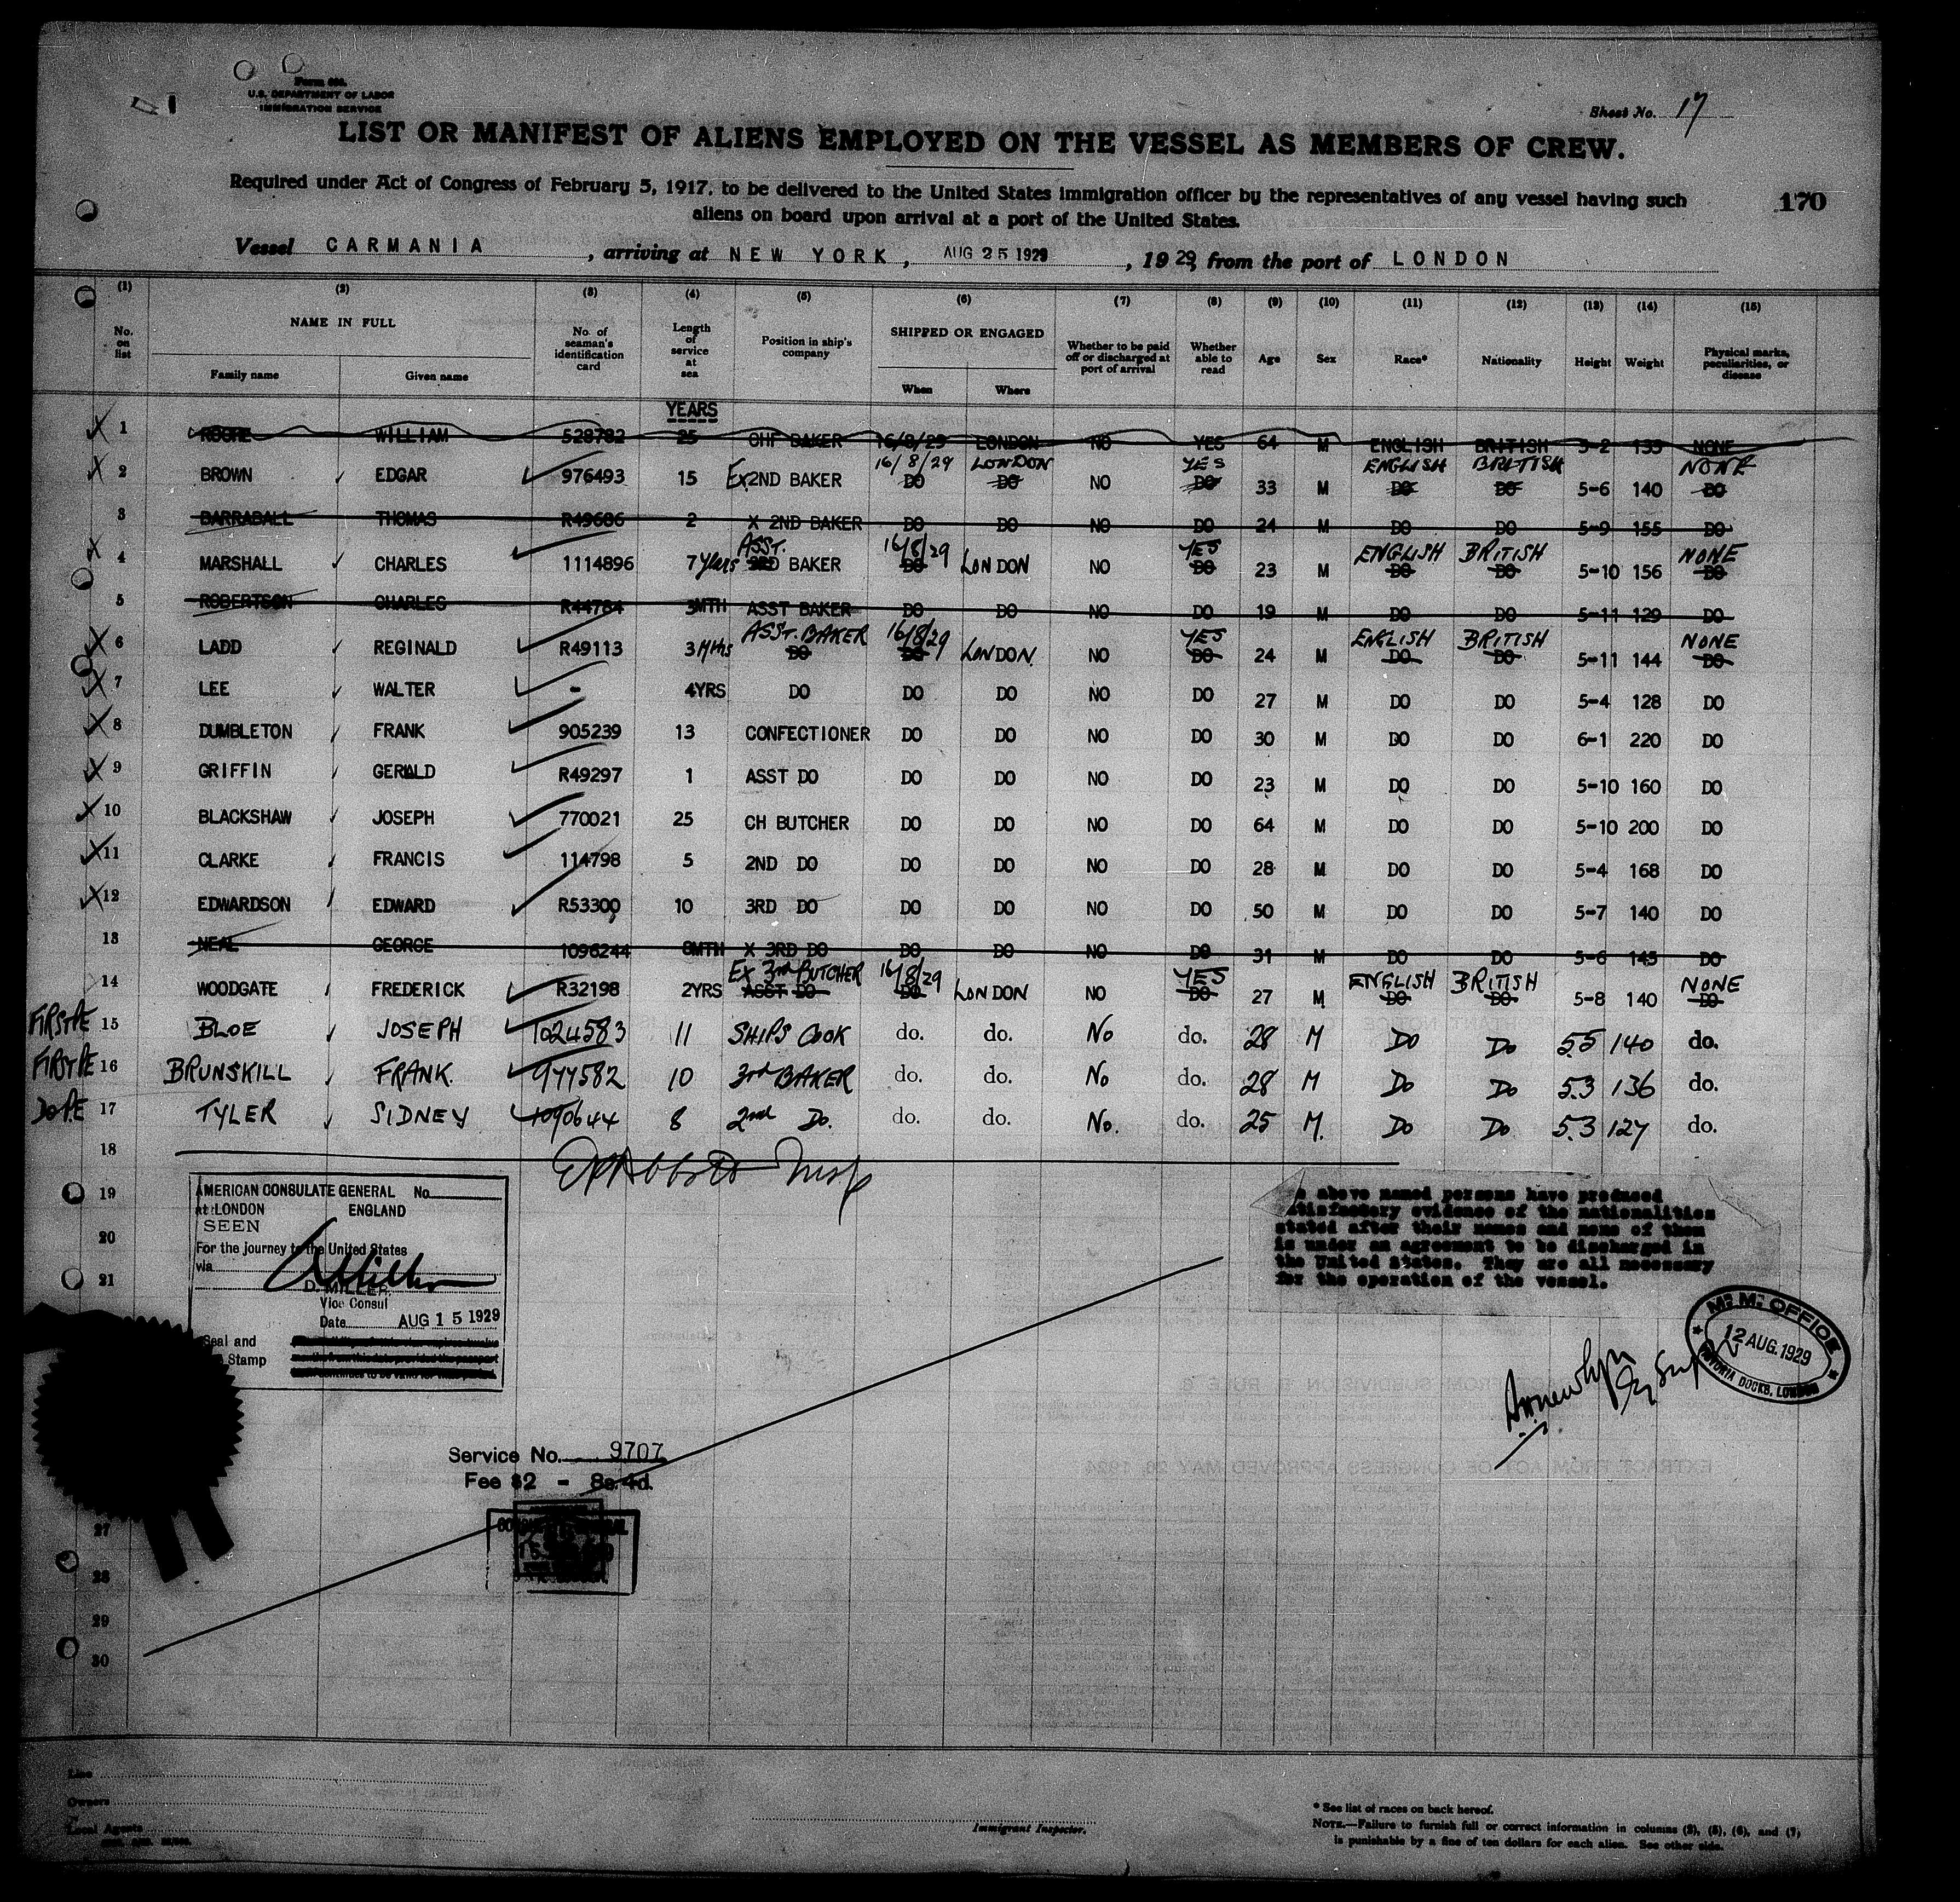 Sheet No. 17
U.S. DEPARTMENT OF LABOR
IMMIGRATION SERVICE
LIST OR MANIFEST OF ALIENS EMPLOYED ON THE VESSEL AS MEMBERS OF CREW.
Required under Act of Congress of February 5, 1917, to be delivered to the United States immigration officer by the representatives of any vessel having such
aliens on board upon arrival at a port of the United States.
170
Vessel CARMANIA, arriving at NEW YORK, AUG 25 1929, 1929, from the port of LONDON
(1) (2) (3) (4) (5) (6) (7) (8) (9) (10) (11) (12) (13) (14) (15)
No. on list NAME IN FULL Family name Given name No. of seaman's identification card Length of service at sea Position in ship's company SHIPPED OR ENGAGED When Where Whether to be paid off or discharged at port of arrival Whether able to read Age Sex Race* Nationality Height Weight Physical marks, peculiarities, or disease
YEARS
1 WILLIAM 528782 25 CHF BAKER 16/8/29 LONDON NO YES 64 M ENGLISH BRITISH 5-2 133 NONE
16/8/29 LONDON YES ENGLISH BRITISH NONE
2 BROWN EDGAR 976493 15 Ex 2ND BAKER DO DO NO DO 33 M DO DO 5-6 140 DO
3 BARRABALL THOMAS R49686 2 X 2ND BAKER DO DO NO DO 24 M DO DO 5-9 155 DO
ASST. 16/8/29 YES ENGLISH BRITISH NONE
4 MARSHALL CHARLES 1114896 7 Years 3RD BAKER DO LONDON NO DO 23 M DO DO 5-10 156 DO
5 ROBERTSON CHARLES R44784 3MTH ASST BAKER DO DO NO DO 19 M DO DO 5-11 129 DO
ASST. BAKER 16/8/29 YES ENGLISH BRITISH NONE
6 LADD REGINALD R49113 3 Mths DO DO LONDON NO DO 24 M DO DO 5-11 144 DO
7 LEE WALTER - 4YRS DO DO DO NO DO 27 M DO DO 5-4 128 DO
8 DUMBLETON FRANK 905239 13 CONFECTIONER DO DO NO DO 30 M DO DO 6-1 220 DO
9 GRIFFIN GERALD R49297 1 ASST DO DO DO NO DO 23 M DO DO 5-10 160 DO
10 BLACKSHAW JOSEPH 770021 25 CH BUTCHER DO DO NO DO 64 M DO DO 5-10 200 DO
11 CLARKE FRANCIS 114798 5 2ND DO DO DO NO DO 28 M DO DO 5-4 168 DO
12 EDWARDSON EDWARD R53300 10 3RD DO DO DO NO DO 50 M DO DO 5-7 140 DO
13 NEAL GEORGE 1096244 6MTH X 3RD DO DO DO NO DO 31 M DO DO 5-6 145 DO
Ex 3rd BUTCHER 16/8/29 YES ENGLISH BRITISH NONE
14 WOODGATE FREDERICK R32198 2YRS ASST DO DO LONDON NO DO 27 M DO DO 5-8 140 DO
15 BLOE JOSEPH 1024583 11 SHIPS COOK do. do. No do. 28 M Do Do 5.5 140 do.
16 BRUNSKILL FRANK. 977582 10 3rd BAKER do. do. No do. 28 M Do Do 5.3 136 do.
17 TYLER SIDNEY 1090644 8 2nd Do. do. do. No. do. 25 M. Do Do 5.3 127 do.
18
19
20
21
AMERICAN CONSULATE GENERAL No.
at LONDON ENGLAND
SEEN
For the journey to the United States
via
D. MILLER.
Vice Consul
Date AUG 15 1929
Seal and
Stamp
above named persons have produced
satisfactory evidence of the nationalities
stated after their names and none of them
is under an agreement to be discharged in
the United States. They are all necessary
for the operation of the vessel.
M.M. OFFICE
12 AUG. 1929
VICTORIA DOCKS, LONDON
Service No. 9707
Fee $2 - 8s. 4d.
27
28
29
30
Line
Owners
Local Agents
Immigrant Inspector.
* See list of races on back hereof.
NOTE.—Failure to furnish full or correct information in columns (2), (5), (6), and (7)
is punishable by a fine of ten dollars for each alien. See other side.